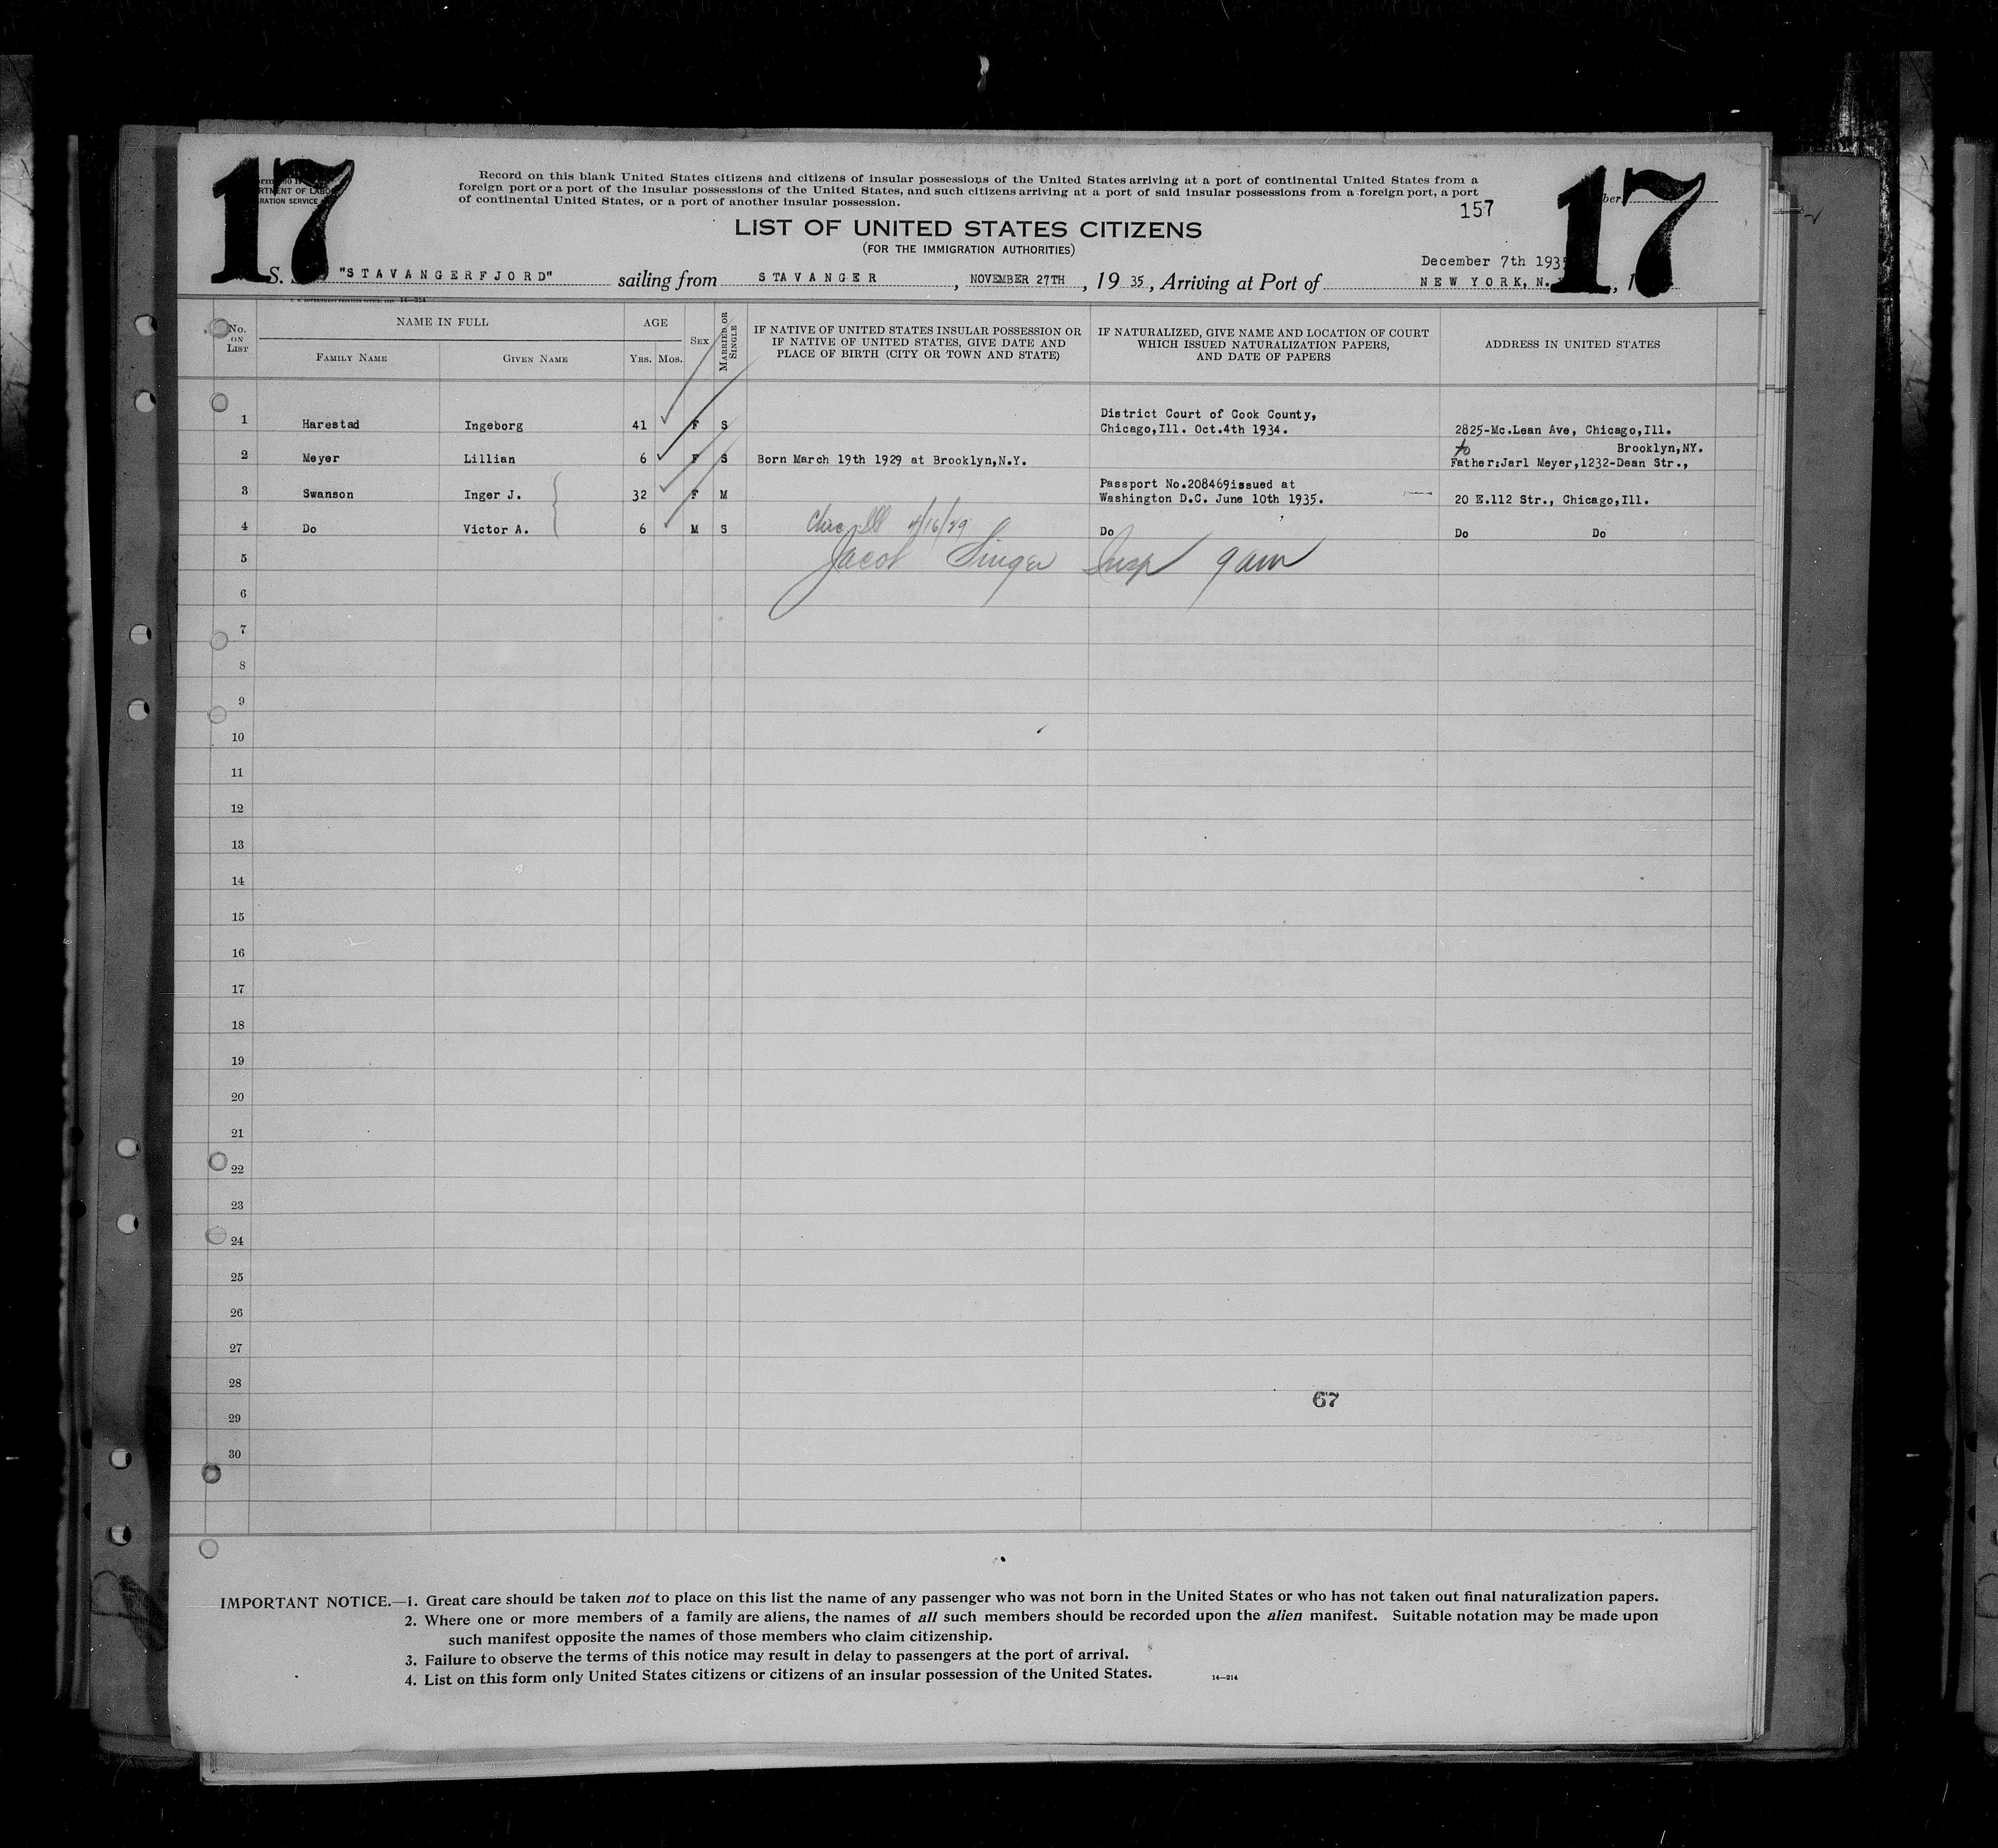 17
17
RTMENT OF LABOR
RATION SERVICE
Record on this blank United States citizens and citizens of insular possessions of the United States arriving at a port of continental United States from a
foreign port or a port of the insular possessions of the United States, and such citizens arriving at a port of said insular possessions from a foreign port, a port
of continental United States, or a port of another insular possession.
157
LIST OF UNITED STATES CITIZENS
(FOR THE IMMIGRATION AUTHORITIES)
December 7th 193
S. "STAVANGERFJORD" sailing from STAVANGER, NOVEMBER 27TH, 1935, Arriving at Port of NEW YORK, N.
No. ON LIST
NAME IN FULL
FAMILY NAME GIVEN NAME
AGE
YRS. MOS.
SEX
MARRIED OR SINGLE
IF NATIVE OF UNITED STATES INSULAR POSSESSION OR
IF NATIVE OF UNITED STATES, GIVE DATE AND
PLACE OF BIRTH (CITY OR TOWN AND STATE)
IF NATURALIZED, GIVE NAME AND LOCATION OF COURT
WHICH ISSUED NATURALIZATION PAPERS,
AND DATE OF PAPERS
ADDRESS IN UNITED STATES
District Court of Cook County,
1 Harestad Ingeborg 41 F S Chicago,Ill. Oct.4th 1934. 2825-Mc.Lean Ave, Chicago,Ill.
to Brooklyn,NY.
2 Meyer Lillian 6 F S Born March 19th 1929 at Brooklyn,N.Y. Father:Jarl Meyer,1232-Dean Str.,
Passport No.208469issued at
3 Swanson Inger J. 32 F M Washington D.C. June 10th 1935. 20 E.112 Str., Chicago,Ill.
4 Do Victor A. 6 M S Chic Ill 4/16/29 Do Do Do
5 Jacob Singer Insp 9am
6
7
8
9
10
11
12
13
14
15
16
17
18
19
20
21
22
23
24
25
26
27
28
67
29
30
IMPORTANT NOTICE.—1. Great care should be taken not to place on this list the name of any passenger who was not born in the United States or who has not taken out final naturalization papers.
2. Where one or more members of a family are aliens, the names of all such members should be recorded upon the alien manifest. Suitable notation may be made upon
such manifest opposite the names of those members who claim citizenship.
3. Failure to observe the terms of this notice may result in delay to passengers at the port of arrival.
4. List on this form only United States citizens or citizens of an insular possession of the United States.
14—214